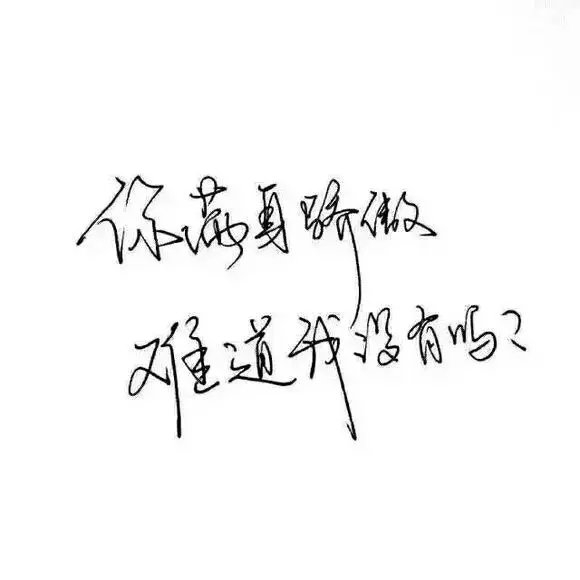 你满身骄傲
难道我没有吗?